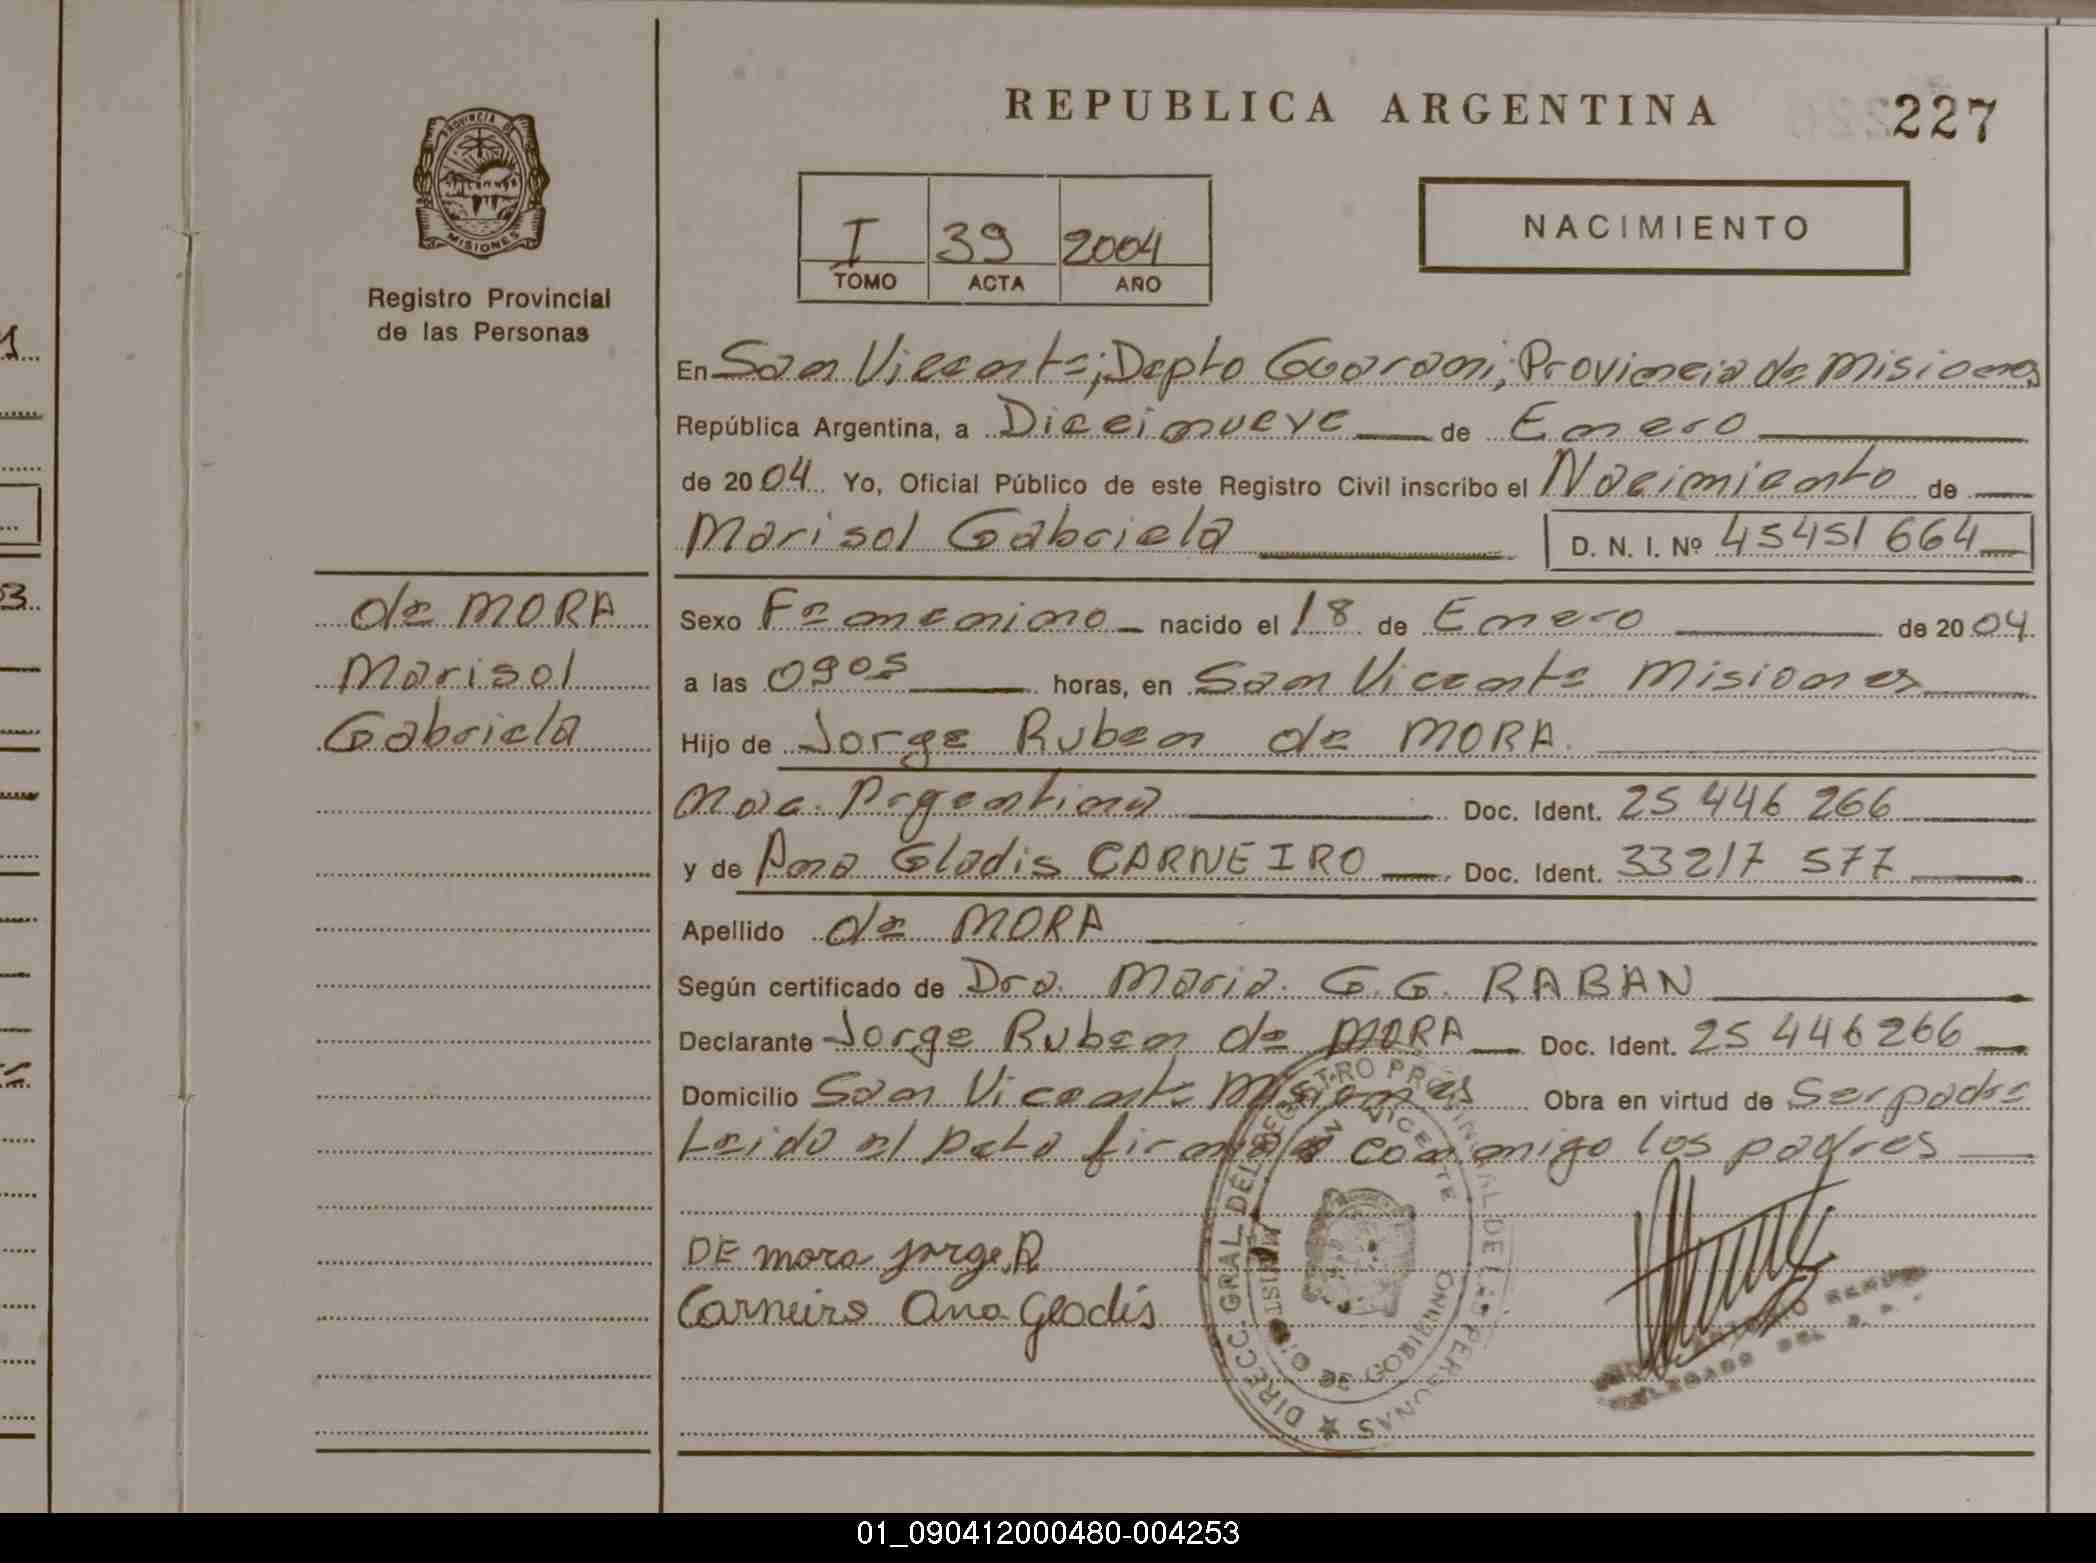 REPUBLICA ARGENTINA
227
PROVINCIA DE
MISIONES
Registro Provincial
de las Personas
I 39 2004
TOMO ACTA AÑO
NACIMIENTO
En San Vicente; Depto Guarani; Provincia de Misiones
República Argentina, a Diceinueve de Enero
de 2004 Yo, Oficial Público de este Registro Civil inscribo el Nacimiento de
Marisol Gabriela D. N. I. Nº 45451664
de MORA
Marisol
Gabriela
Sexo Femenino nacido el 18 de Enero de 2004
a las 0905 horas, en San Vicente Misiones
Hijo de Jorge Ruben de MORA.
Nac. Argentina Doc. Ident. 25 446 266
y de Ana Gladis CARNEIRO Doc. Ident. 33217 577
Apellido de MORA
Según certificado de Dra. Maria. G. G. RABAN
Declarante Jorge Ruben de MORA Doc. Ident. 25 446266
Domicilio San Vicente Misiones Obra en virtud de Ser padre
Leido el Acta firman conmigo los padres
DE mora jorge.R
Carneiro Ana Gladis
DIRECC. GRAL. DEL REGISTRO PROVINCIAL DE LAS PERSONAS
SAN VICENTE
MINIST. DE GOBIERNO
DELEGADO DEL R.P.
01_090412000480-004253